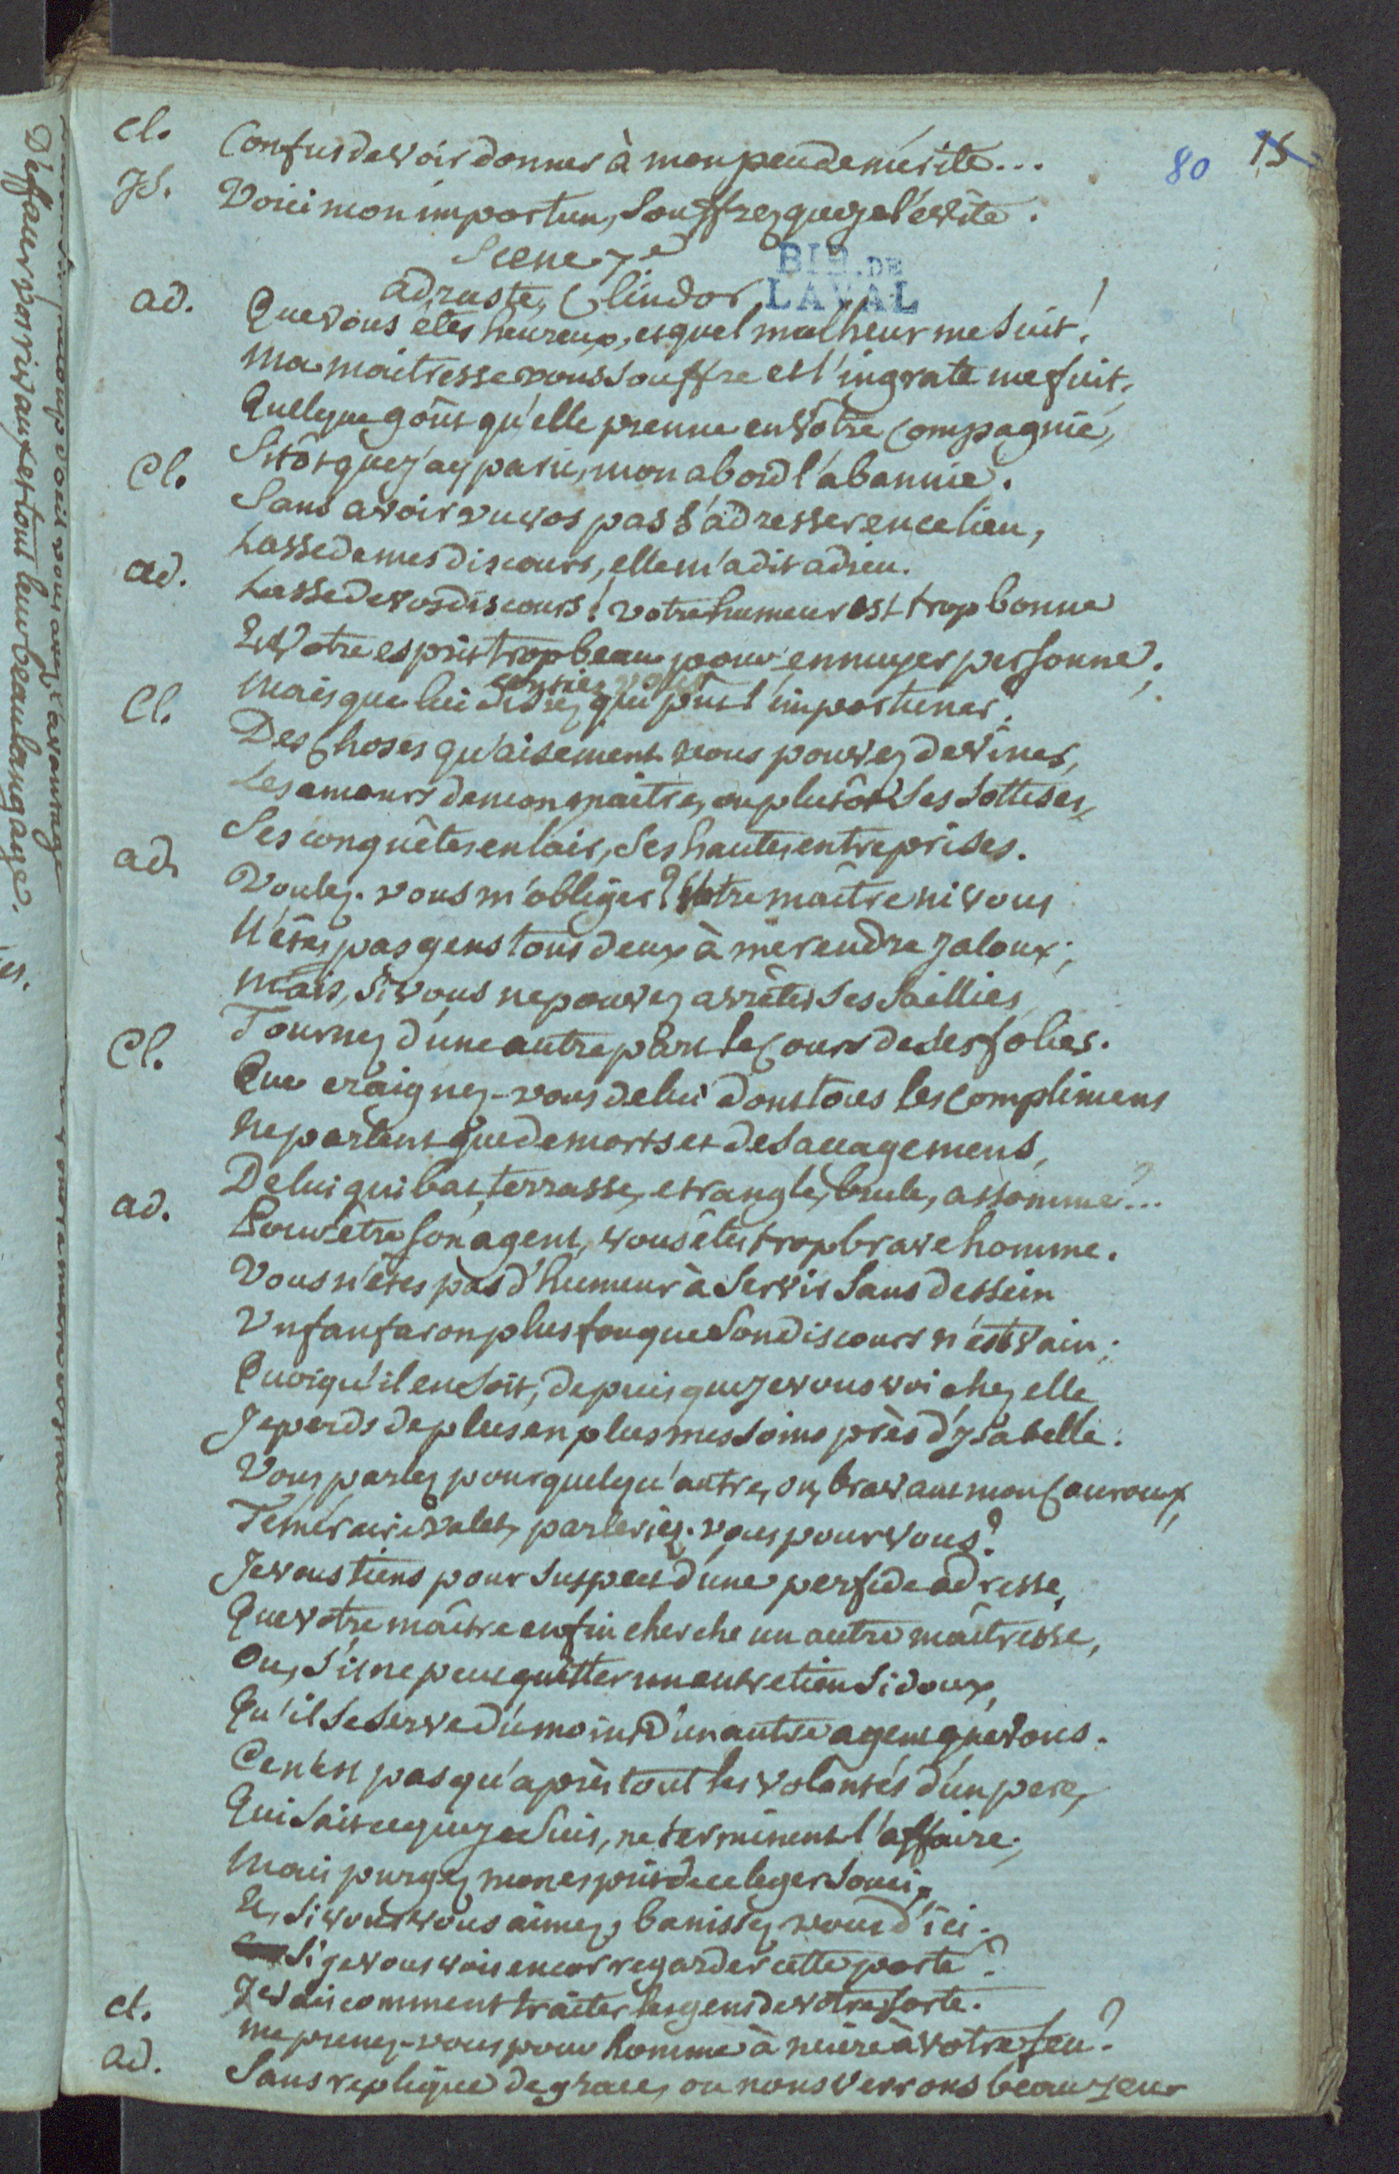 80 15
Cl. Confus de voir donner à mon peu de mérite...
Js. Voici mon importun, Souffrez que je l'évite.
Scene 7e
adraste, Clindor
BIB. DE
LAVAL
ad. Que vous êtes heureux, et quel malheur me suit!
Ma maitresse vous souffre et l'ingrate me fuit;
Quelque goût qu'elle prenne en votre compagnie,
Sitôt que j'ay paru, mon abord l'a bannie.
Cl. Sans avoir vu vos pas s'adresser en ce lieu,
Lasse de mes discours, elle m'a dit adieu.
ad. Lasse de vos discours! votre humeur est trop bonne
Et votre esprit trop beau pour ennuyer personne;
Mais que lui disiez qui pût l'importuner?
Cl. Des choses qu'aisement vous pouvez deviner,
Les amours de mon maître, ou plutôt ses sottises,
Ses conquêtes en l'air, ses hautes entreprises.
ad. Voulez-vous m'obliger? Votre maître ni vous
N'êtes pas gens tous deux à me rendre jaloux;
Mais, si vous ne pouvez arrêter ses saillies,
Tournez d'une autre part le cours de ses folies.
Cl. Que craignez-vous de lui dont tous les complimens
Ne parlent que de morts et de saccagemens,
De lui qui bat, terrasse, etrangle, brule, assomme?...
ad. Pour être son agent, vous êtes trop brave homme.
Vous n'êtes pas d'humeur à servir sans dessein
Un fanfaron plus fou que son discours n'est vain;
Quoiqu'il en soit, depuis que je vous voi chez elle
Je perds de plus en plus mes soins près d'ysabelle.
Vous parlez pour quelqu'autre, ou, bravant mon couroux,
Téméraire valet, parleriez-vous pour vous?
Je vous tiens pour suspect d'une perfide adresse,
Que votre maître enfin cherche un autre maîtresse,
Ou, s'il ne peut quitter un entretien si doux,
Qu'il se serve du moins d'un autre agent que vous.
Ce n'est pas qu'après tout les volontés d'un pere,
Qui sait ce que je suis, ne terminent l'affaire;
Mais purgez mon esprit de ce leger souci,
Et, si vous vous aimez, banissez vous d'ici.
Si je vous vois encor regarder cette porte?
Je sais comment traiter les gens de votre sorte.
Cl. me prenez-vous pour homme à nuire à votre feu?
ad. Sans replique de grace, ou nous verrons beau jeu
D'effacer vos rivaux et tout leur beau langage.